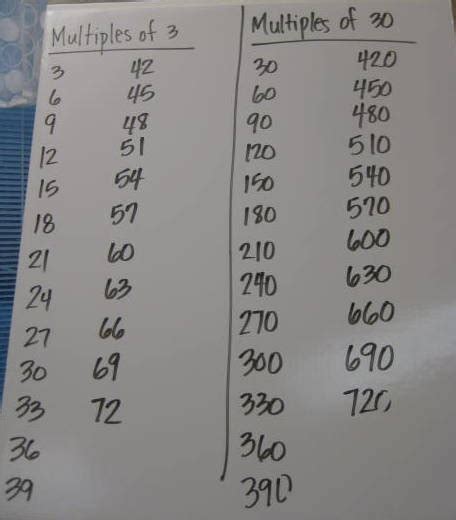 Multiples of 3 Multiples of 30
3 42 30 420
6 45 60 450
9 48 90 480
12 51 120 510
15 54 150 540
18 57 180 570
21 60 210 600
24 63 240 630
27 66 270 660
30 69 300 690
33 72 330 720
36 360
39 390